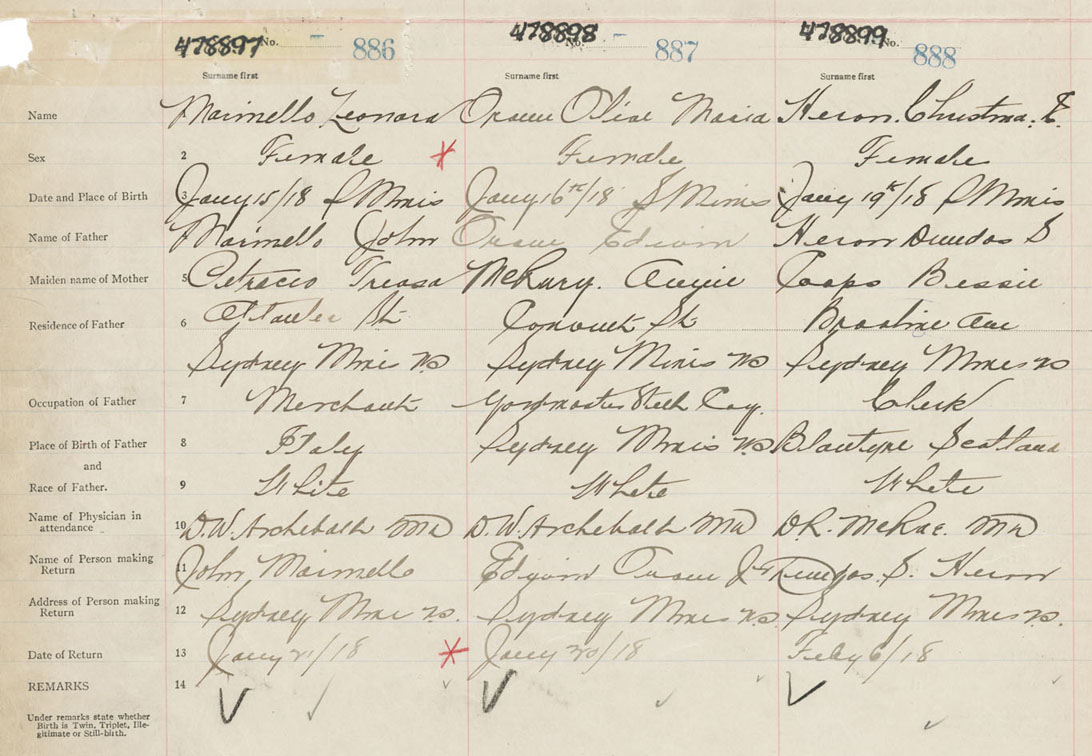 478897 No. 886 478898 No. 887 478899 No. 888
Surname first Surname first Surname first
Name Marinello Leonora Olive Maria Heron. Christina. E.
Sex 2 Female Female Female
Date and Place of Birth 3 Jany 15/18 S Mines Jany 16th/18 S Mines Jany 19th/18 S Mines
Name of Father Marinello John Edwin Heron Dundas S
Maiden name of Mother 5 Bessie
Residence of Father 6 St St Ave
Sydney Mines NS Sydney Mines NS Sydney Mines NS
Occupation of Father 7 Merchant Steel Coy. Clerk
Place of Birth of Father 8 Italy Sydney Mines NS Blantyre Scotland
and
Race of Father. 9 White White White
Name of Physician in attendance 10 D.W. Archibald MD D.W. Archibald MD D.R. McRae. MD
Name of Person making Return 11 John Marinello Edwin Jr Dundas. S. Heron
Address of Person making Return 12 Sydney Mines NS. Sydney Mines NS Sydney Mines NS.
Date of Return 13 Jany 21/18 Jany 20/18 Feby 6/18
REMARKS 14
Under remarks state whether
Birth is Twin, Triplet, Ille-
gitimate or Still-birth.